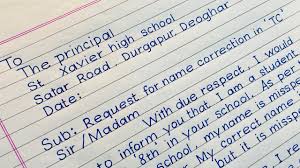 To
The principal
St Xavier high school
Satar Road, Durgapur, Deoghar
Date:
Sub: Request for name correction in 'TC'
Sir/Madam, With due respect, I would
to inform you that I am a student
8th in your school. As per
my name is missp
, My correct name
but it is